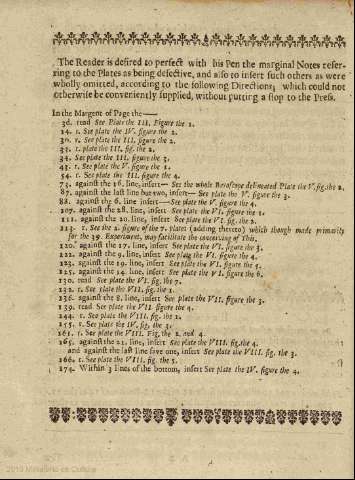 The Reader is desired to perfect with his Pen the marginal Notes refer-
ring to the Plates as being defective, and also to insert such others as were
wholly omitted, according to the following Directions; which could not
otherwise be conveniently supplied, without putting a stop to the Press.
In the Margent of Page the——
36. read See Plate the III. Figure the 1.
24. r. See plate the IV. figure the 2.
30. r. See plate the III. figure the 2.
33. r. plate the III. fig. the 2.
34. See plate the III. figure the 3.
43. r. See plate the V. figure the 1.
54. r. See plate the III. figure the 4.
73. against the 16. line, insert— See the whole Baroscope delineated Plate the V. fig. the 2.
87. against the last line but two, insert— See plate the V. figure the 3.
88. against the 6. line insert—See plate the V. figure the 4.
107. against the 28. line, insert See plate the VI. figure the 1.
111. against the 20. line, insert See plate the VI. fig. the 2.
113. r. See the 2. figure of the 7. plates (adding thereto) which though made primarily
for the 39. Experiment, may facilitate the conceiving of This.
120. against the 17. line, insert See plate the VI. figure the 3.
122. against the 9. line, insert See plate the VI. figure the 4.
123. against the 19. line, insert See plate the VI. figure the 5.
125. against the 14. line, insert See plate the VI. figure the 6.
130. read See plate the VI. fig. the 7.
132. r. See plate the VII. fig. the 1.
136. against the 8. line, insert See plate the VII. figure the 3.
139. read See plate the VII. figure the 4.
144. r. See plate the VIII. fig. the 2.
155. r. See plate the IV. fig. the 3.
161. r. See plate the VIII. Fig. the 2. and 4.
165. against the 21. line, insert See plate the VIII. fig. the 4.
and against the last line save one, insert See plate the VIII. fig. the 3.
166. r. See plate the VIII. fig. the 5.
174. Within 3 lines of the bottom, insert See plate the IV. figure the 4.
2010 Ministerio de Cultura